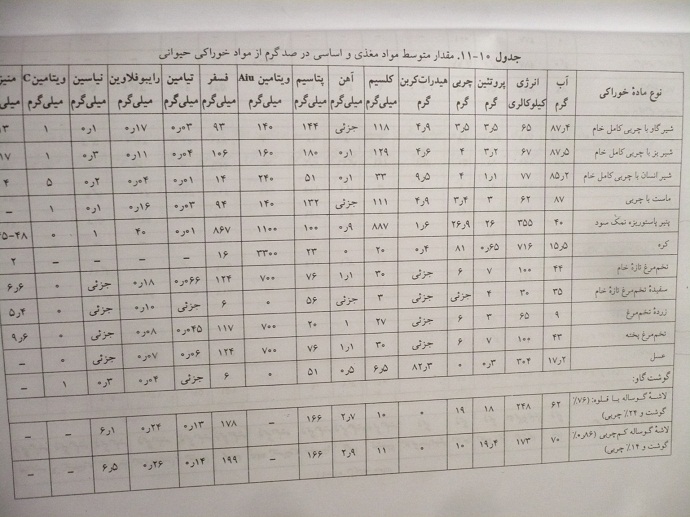 جدول ۱۰-۱۱. مقدار متوسط مواد مغذی و اساسی در صد گرم از مواد خوراکی حیوانی
نوع مادهٔ خوراکی آب گرم انرژی کیلوکالری پروتئین گرم چربی گرم هیدرات‌کربن گرم کلسیم میلی‌گرم آهن میلی‌گرم پتاسیم میلی‌گرم ویتامین Aiu فسفر میلی‌گرم تیامین میلی‌گرم رایبوفلاوین میلی‌گرم نیاسین میلی‌گرم ویتامین C میلی‌گرم
شیر گاو با چربی کامل خام ۸۷٫۴ ۶۵ ۳٫۵ ۳٫۵ ۴٫۹ ۱۱۸ جزئی ۱۴۴ ۱۴۰ ۹۳ ۰٫۰۳ ۰٫۱۷ ۰٫۱ ۱
شیر بز با چربی کامل خام ۸۷٫۵ ۶۷ ۳٫۲ ۴ ۴٫۶ ۱۲۹ ۰٫۱ ۱۸۰ ۱۶۰ ۱۰۶ ۰٫۰۴ ۰٫۱۱ ۰٫۳ ۱ ۱۷
شیر انسان با چربی کامل خام ۸۵٫۲ ۷۷ ۱٫۱ ۴ ۹٫۵ ۳۳ ۰٫۱ ۵۱ ۲۴۰ ۱۴ ۰٫۰۱ ۰٫۰۴ ۰٫۲ ۵ ۴
ماست با چربی ۸۷ ۶۲ ۳ ۳٫۴ ۴٫۹ ۱۱۱ جزئی ۱۳۲ ۱۴۰ ۹۴ ۰٫۰۳ ۰٫۱۶ ۰٫۱ ۱ –
پنیر پاستوریزه نمک سود ۴۰ ۳۵۵ ۲۶ ۲۶٫۹ ۱٫۶ ۸۸۷ ۰٫۹ ۱۰۰ ۱۱۰۰ ۸۶۷ ۰٫۰۱ ۴۰ ۱ ۰
کره ۱۵٫۵ ۷۱۶ ۰٫۶۵ ۸۱ ۰٫۴ ۲۰ ۰ ۲۳ ۳۳۰۰ ۱۶ – – – – ۲
تخم‌مرغ تازهٔ خام ۴۴ ۱۰۰ ۷ ۶ جزئی ۳۰ ۱٫۱ ۷۶ ۷۰۰ ۱۲۴ ۰٫۰۶۶ ۰٫۱۸ جزئی ۰ ۶٫۶
سفیدهٔ تخم‌مرغ تازهٔ خام ۳۵ ۳۰ ۴ جزئی جزئی ۳ جزئی ۵۶ ۰ ۶ جزئی ۰٫۱۰ جزئی ۰ ۵٫۴
زردهٔ تخم‌مرغ ۹ ۶۵ ۳ ۶ جزئی ۲۷ ۱ ۲۰ ۷۰۰ ۱۱۷ ۰٫۰۴۵ ۰٫۰۸ جزئی ۰ ۹٫۶
تخم‌مرغ پخته ۴۳ ۱۰۰ ۷ ۶ جزئی ۳۰ ۱٫۱ ۷۶ ۷۰۰ ۱۲۴ ۰٫۰۶ ۰٫۰۷ جزئی ۰ –
عسل ۱۷٫۲ ۳۰۴ ۰٫۳ ۰ ۸۲٫۳ ۵٫۶ ۰٫۵ ۵۱ ۰ ۶ جزئی ۰٫۰۴ ۰٫۳ ۱ –
گوشت گاو:
لاشهٔ گوساله با قلوه: (۷۶٪ گوشت و ۲۲٪ چربی) ۶۲ ۲۴۸ ۱۸ ۱۹ ۰ ۱۰ ۲٫۷ ۱۶۶ – ۱۷۸ ۰٫۱۳ ۰٫۲۴ ۶٫۱ – –
لاشهٔ گوساله کم‌چربی (۰٫۸۶٪ گوشت و ۱۴٪ چربی) ۷۰ ۱۷۳ ۱۹٫۴ ۱۰ ۰ ۱۱ ۲٫۹ ۱۶۶ – ۱۹۹ ۰٫۱۴ ۰٫۲۶ ۶٫۵ – –